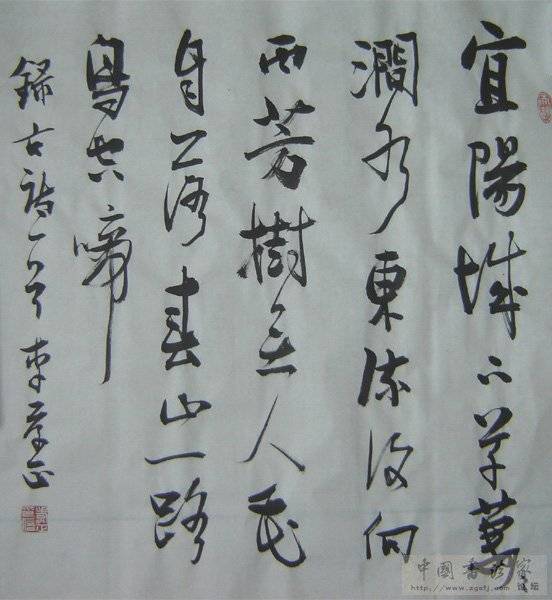 宜陽城下草萋々
澗水東流復向
西芳樹無人花
自落春山一路
鳥空啼
錄古詩一首 李
中國書法家
论坛
http://www.zgsfj.com